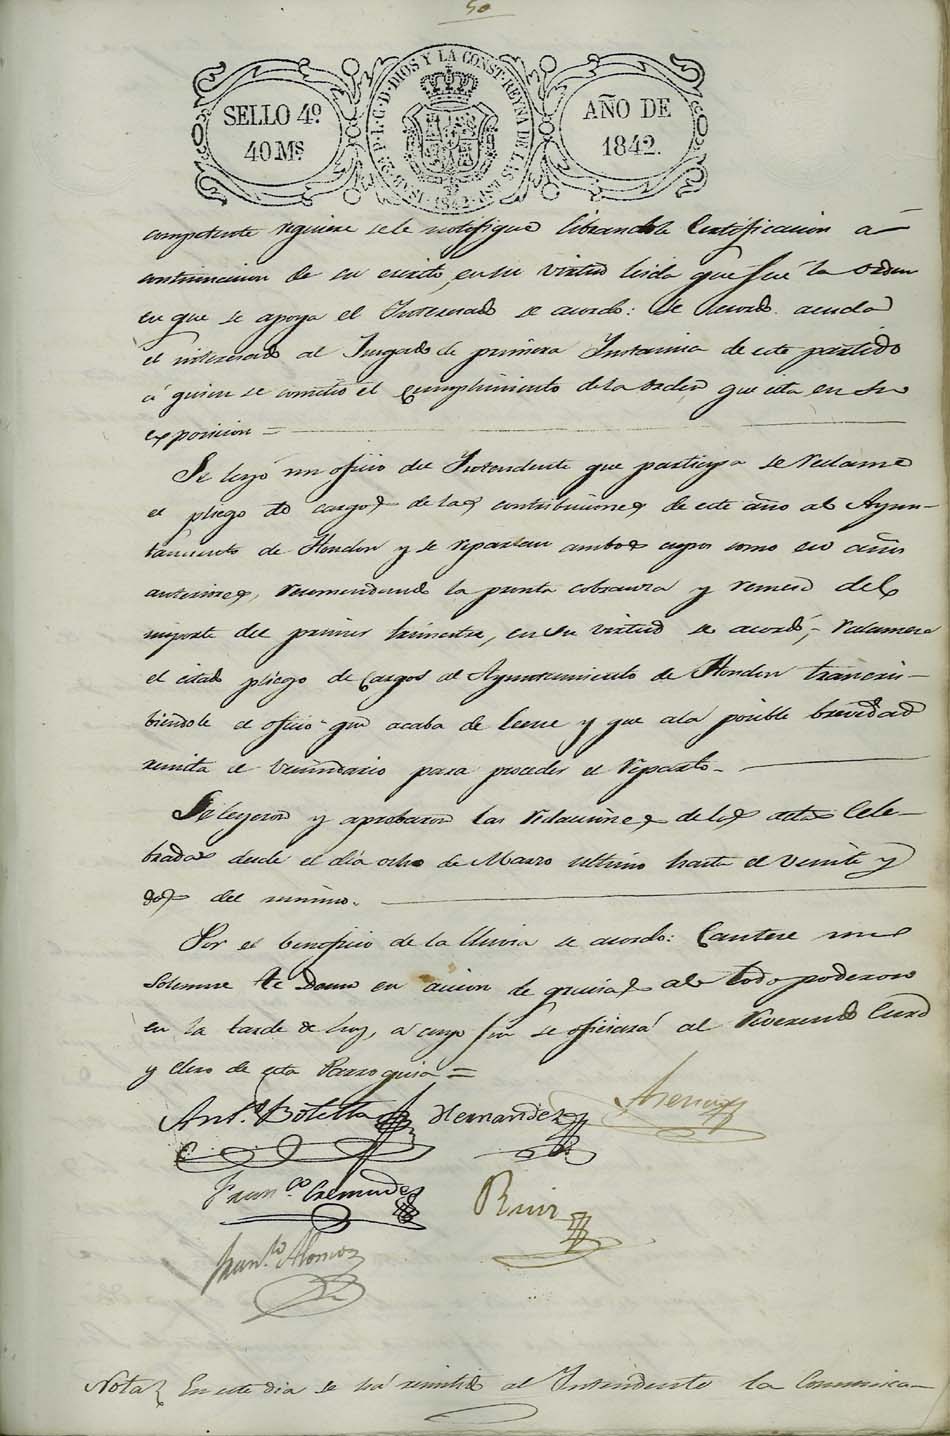 50
SELLO 4º
40 Ms.
ISAB. 2ª P. L. G. D. DIOS Y LA CONST. REYNA DE LAS ESP. 1842
AÑO DE
1842.
competente requiere sele notifique librandole Certificacion á
continuacion de su escrito, en su virtud leida que fué la orden
en que se apoya el Interesado se acordo: Se acordo acuda
el interesado al Juzgado de primera Instancia de este partido
á quien se cometió el cumplimiento de la orden que cita en su
exposicion =
Se leyó un oficio del Intendente que participa se reclame
el pliego de cargos de las contribuciones de este año al Ayun-
tamiento de Hondon y se repartan ambos cupos como en años
anteriores, recomendando la pronta cobranza y remesa del
importe del primer trimestre, en su virtud se acordó, Reclamese
el citado pliego de Cargos al Ayuntamiento de Hondon transcri-
biendole el oficio que acaba de leerse y que ala posible brevedad
remita el vecindario para proceder al reparto.
Se leyeron y aprobaron las relaciones de las actas Cele-
bradas desde el dia ocho de Marzo ultimo hasta el veinte y
dos del mismo.
Por el beneficio de la lluvia se acordo: Cantese un
solemne te Deum en accion de gracias al todo poderoso
en la tarde de hoy, a cuyo fin se oficiará al Reverendo Cura
y clero de esta Parroquia =
Antº Botella Hernandez
Franco. Cremades Ruiz
Alonso
Nota En este dia se há remitido al Intendente la Comunica-